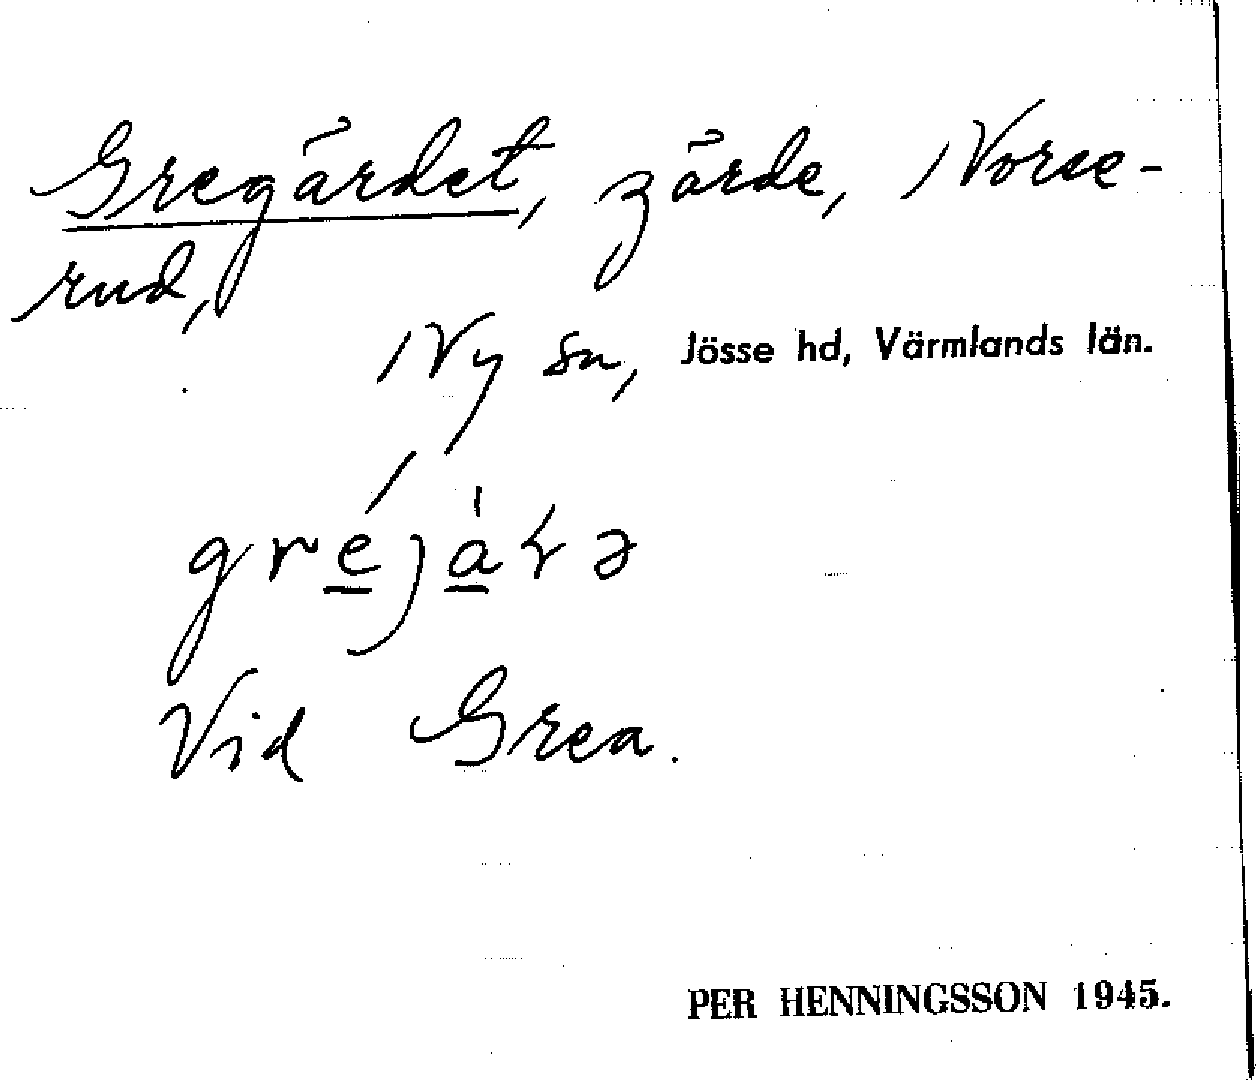 Gregärdet, gärde, Norse-
rud,
Ny sn, Jösse hd, Värmlands län.
Vid Grea.
PER HENNINGSSON 1945.